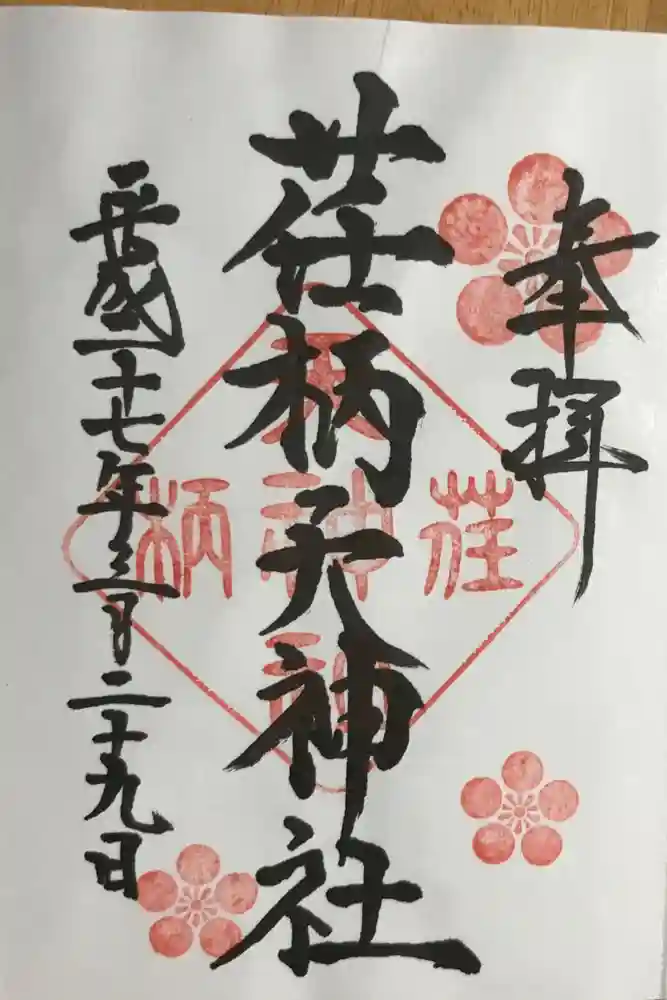 奉拝
荏柄天神社
平成二十七年三月二十九日
荏
柄